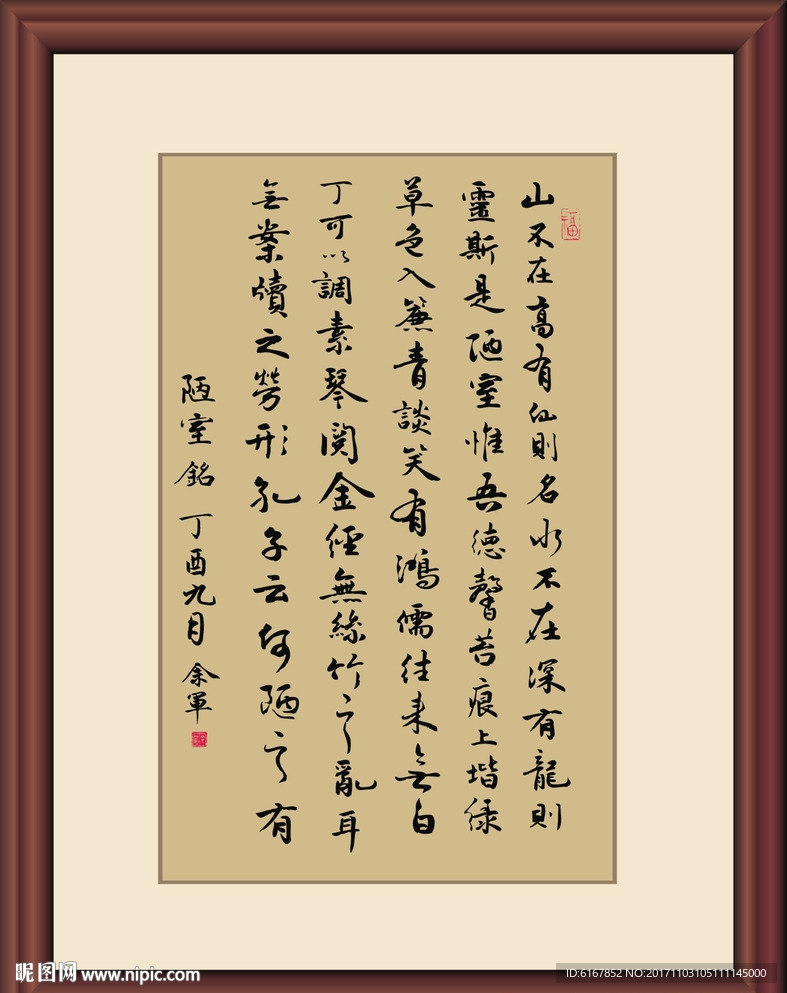 福
山不在高有仙則名水不在深有龍則
靈斯是陋室惟吾德馨苔痕上堦绿
草色入簾青談笑有鴻儒往来無白
丁可以調素琴閱金經無絲竹之亂耳
無案牘之勞形孔子云何陋之有
陋室銘 丁酉九月 余軍
昵图网 www.nipic.com
ID:6167852 NO:20171103105111145000